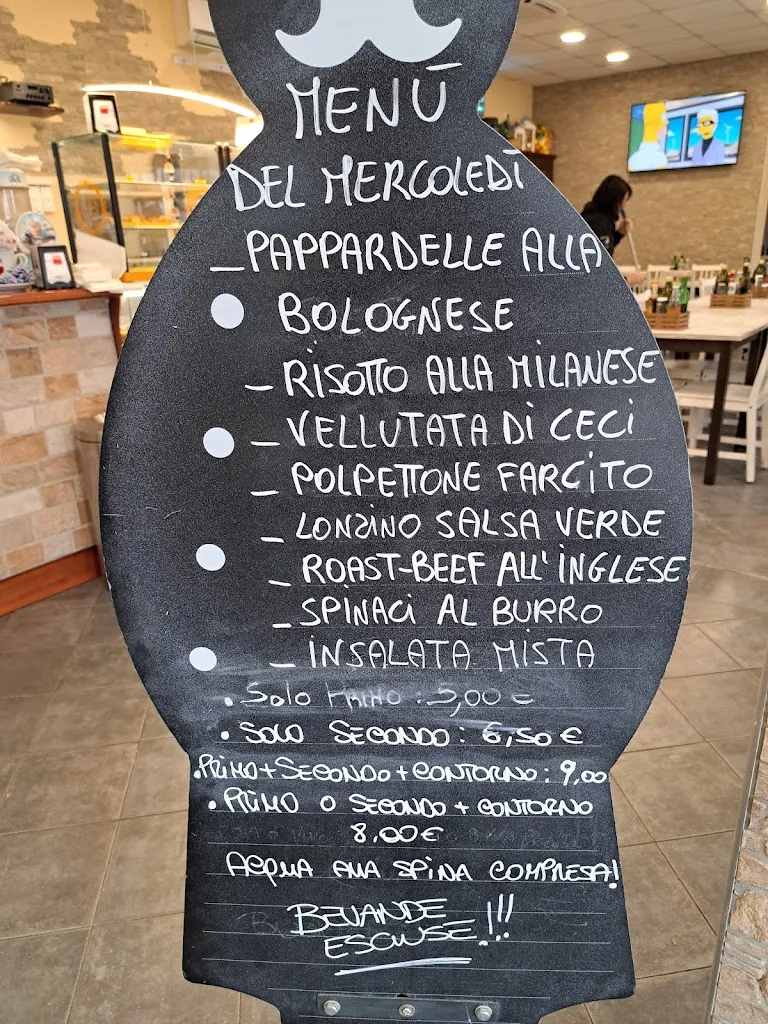 MENÙ
DEL MERCOLEDÌ
_ PAPPARDELLE ALLA
BOLOGNESE
_ RISOTTO ALLA MILANESE
_ VELLUTATA DI CECI
_ POLPETTONE FARCITO
_ LONZINO SALSA VERDE
_ ROAST-BEEF ALL'INGLESE
_ SPINACI AL BURRO
_ INSALATA MISTA
• SOLO PRIMO : 5,00 €
• SOLO SECONDO : 6,50 €
• PRIMO + SECONDO + CONTORNO : 9,00
• PRIMO O SECONDO + CONTORNO
8,00 €
ACQUA ALLA SPINA COMPRESA!
BEVANDE
ESCLUSE!!!